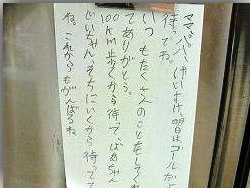 ママ、パパ、けいすけ、明日はゴールだよ
待っでね。
いつもたくさんのことをしてくれ
てありがとう。
100km歩くから待って、ばあちゃん
じいちゃん、そちにいくから待ってて
ね。これからもがんばるね。